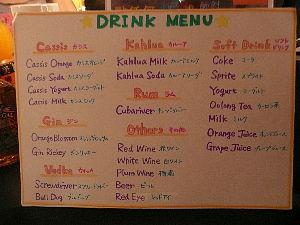 DRINK MENU
Cassis カシス
Cassis Orange カシスオレンジ
Cassis Soda カシスソーダ
Cassis Yogurt カシスヨーグルト
Cassis Milk カシスミルク
Gin ジン
Orange Blossom オレンジブロッサム
Gin Rickey ジンリッキー
Vodka ウォッカ
Screwdriver スクリュードライバー
Bull Dog ブルドッグ
Kahlua カルーア
Kahlua Milk カルーアミルク
Kahlua Soda カルーアソーダ
Rum ラム
Cubariver
Others その他
Red Wine 赤ワイン
White Wine 白ワイン
Plum Wine 梅酒
Beer ビール
Red Eye レッドアイ
Soft Drink ソフトドリンク
Coke コーラ
Sprite スプライト
Yogurt ヨーグルト
Oolong Tea ウーロン茶
Milk ミルク
Orange Juice オレンジジュース
Grape Juice グレープジュース